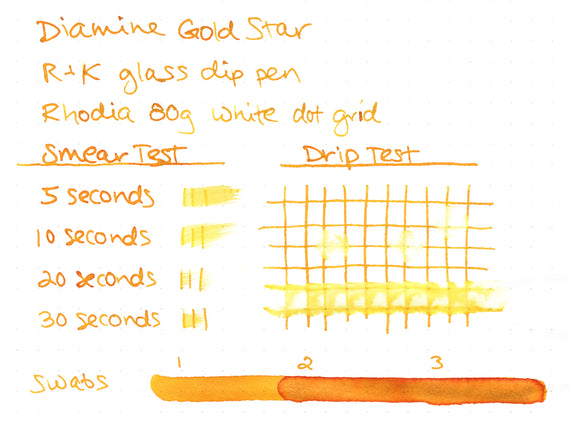 Diamine Gold Star
R+K glass dip pen
Rhodia 80g white dot grid
Smear Test Drip Test
5 seconds
10 seconds
20 seconds
30 seconds
1 2 3
Swabs